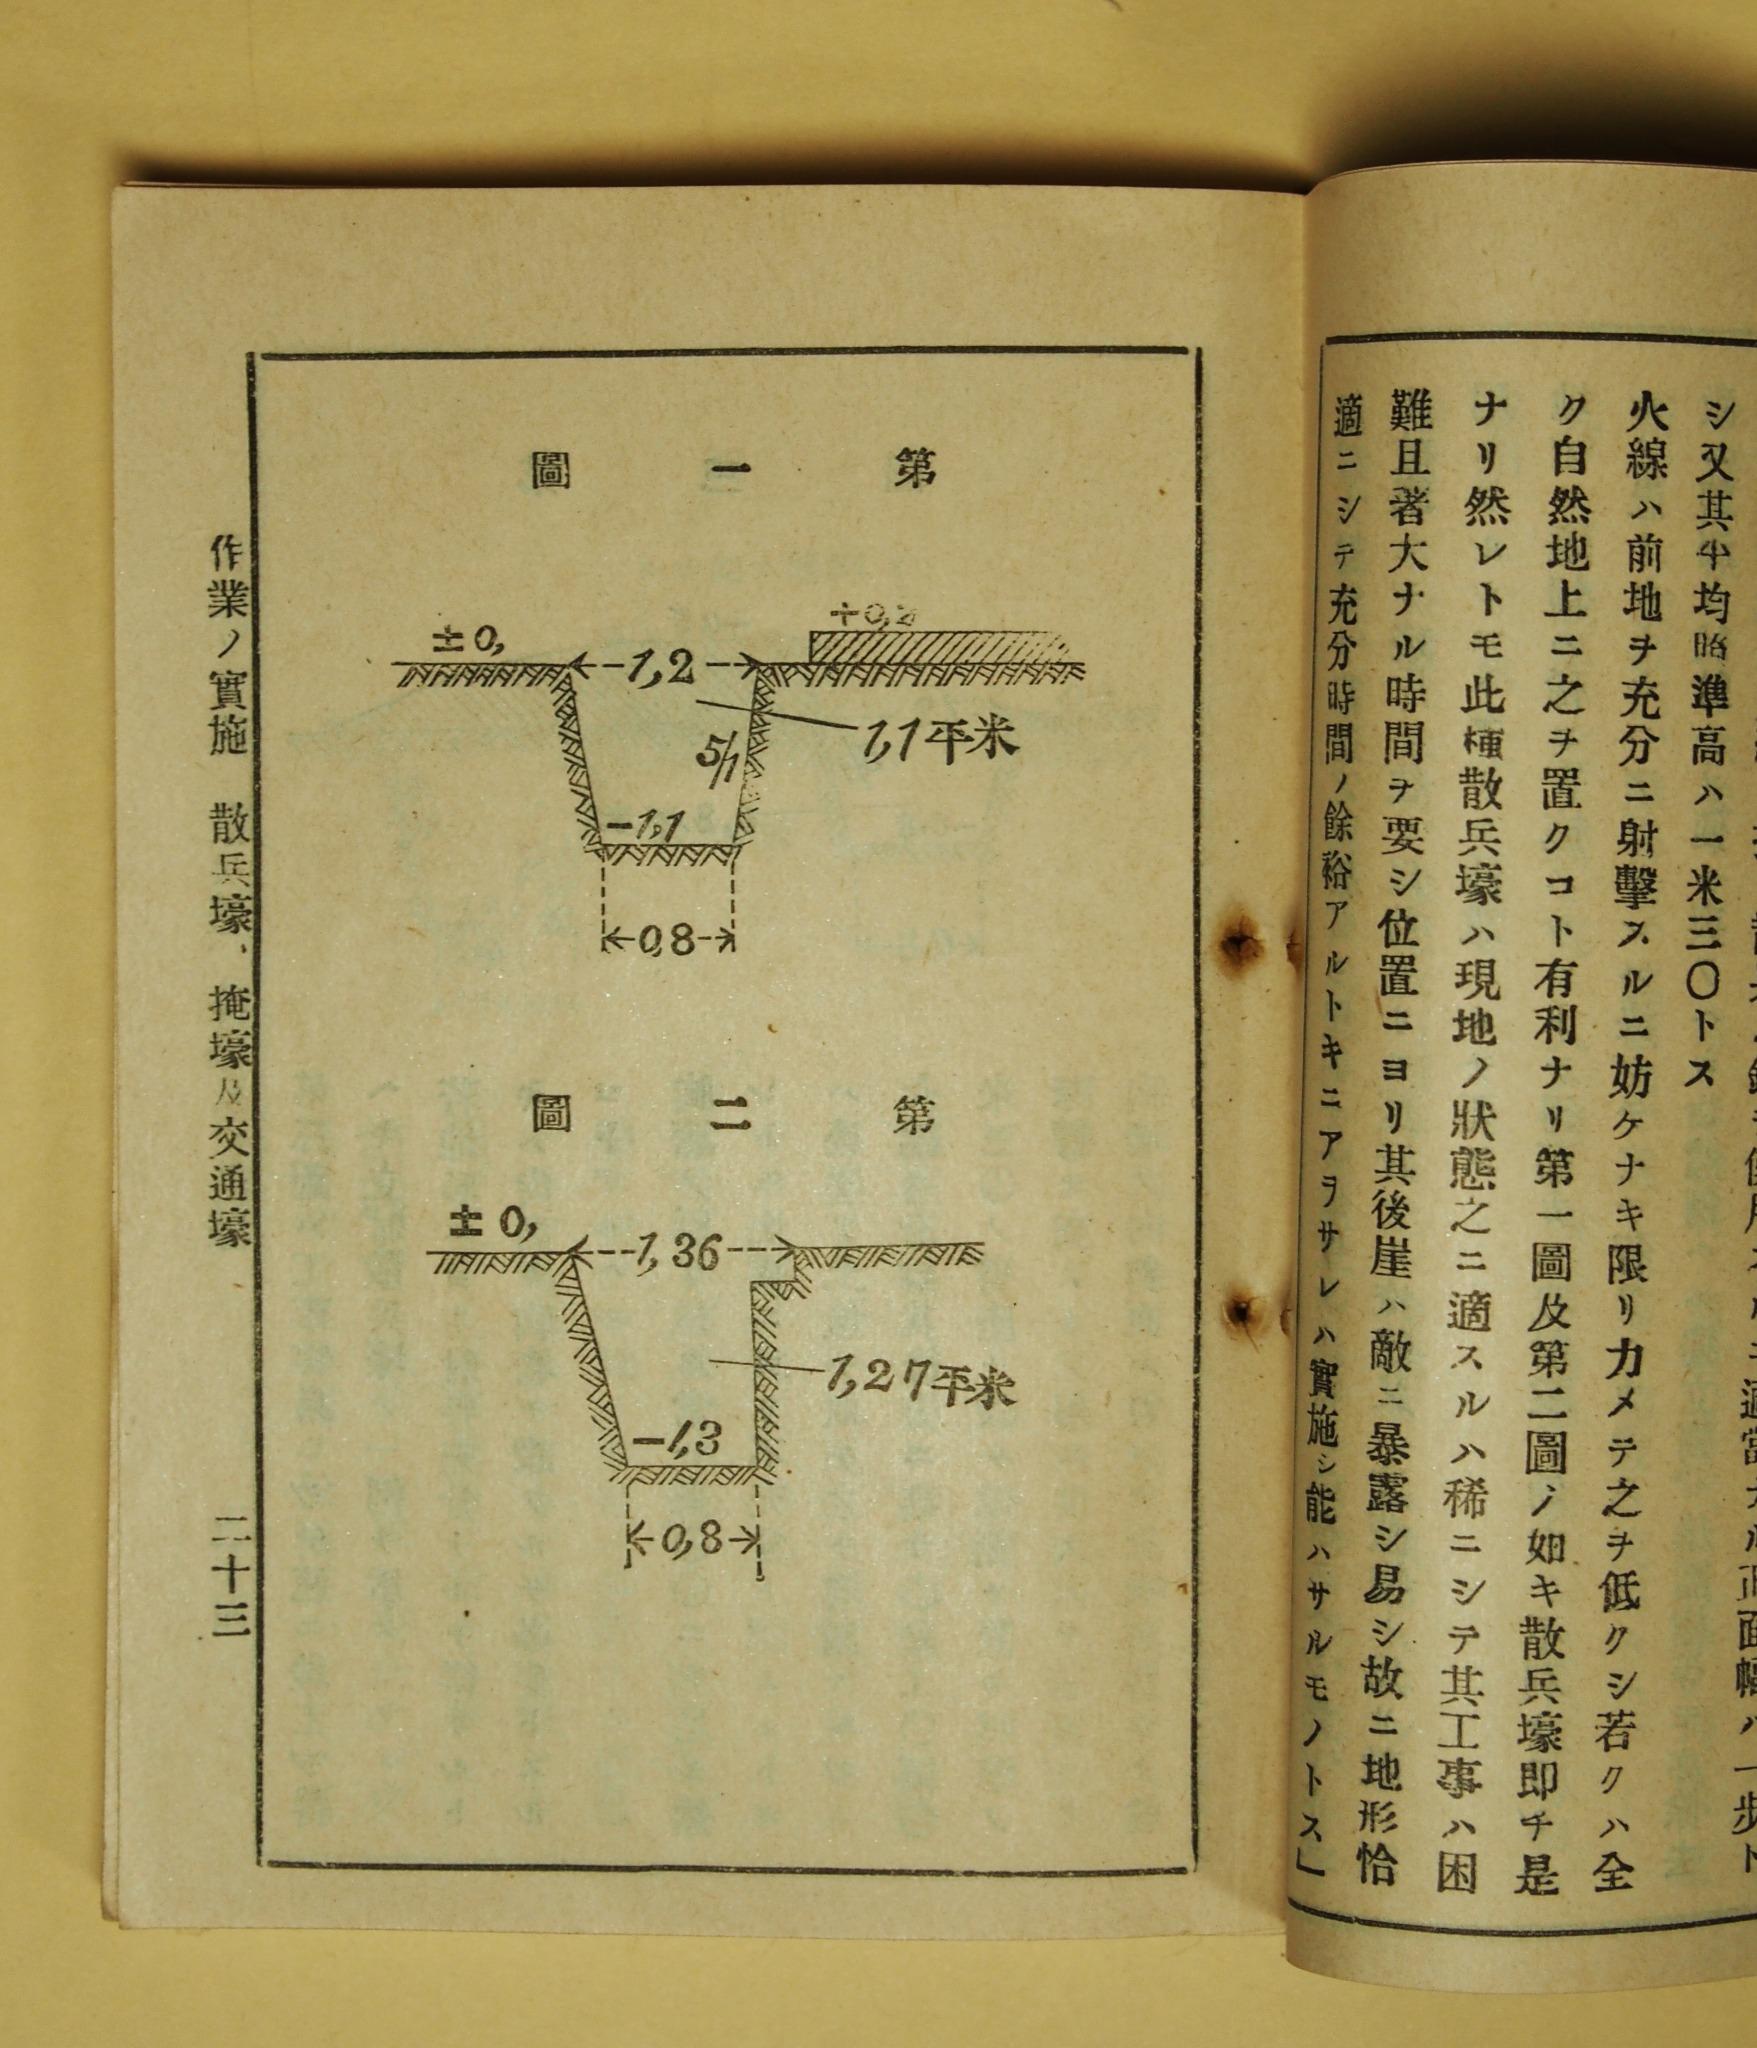 シ又其平均略準高ハ一米三〇トス
火線ハ前地ヲ充分ニ射擊スルニ妨ケナキ限リ力メテ之ヲ低クシ若クハ全
ク自然地上ニ之ヲ置クコト有利ナリ第一圖及第二圖ノ如キ散兵壕即チ是
ナリ然レトモ此種散兵壕ハ現地ノ狀態之ニ適スルハ稀ニシテ其工事ハ困
難且著大ナル時間ヲ要シ位置ニヨリ其後崖ハ敵ニ暴露シ易シ故ニ地形恰
適ニシテ充分時間ノ餘裕アルトキニアヲサレハ實施シ能ハサルモノトス」
第一圖
±0,
1,2
+0,2
1,1平米
5/1
-1,1
0,8
第二圖
±0,
1,36
1,27平米
-1,3
0,8
作業ノ實施 散兵壕、掩壕及交通壕
二十三